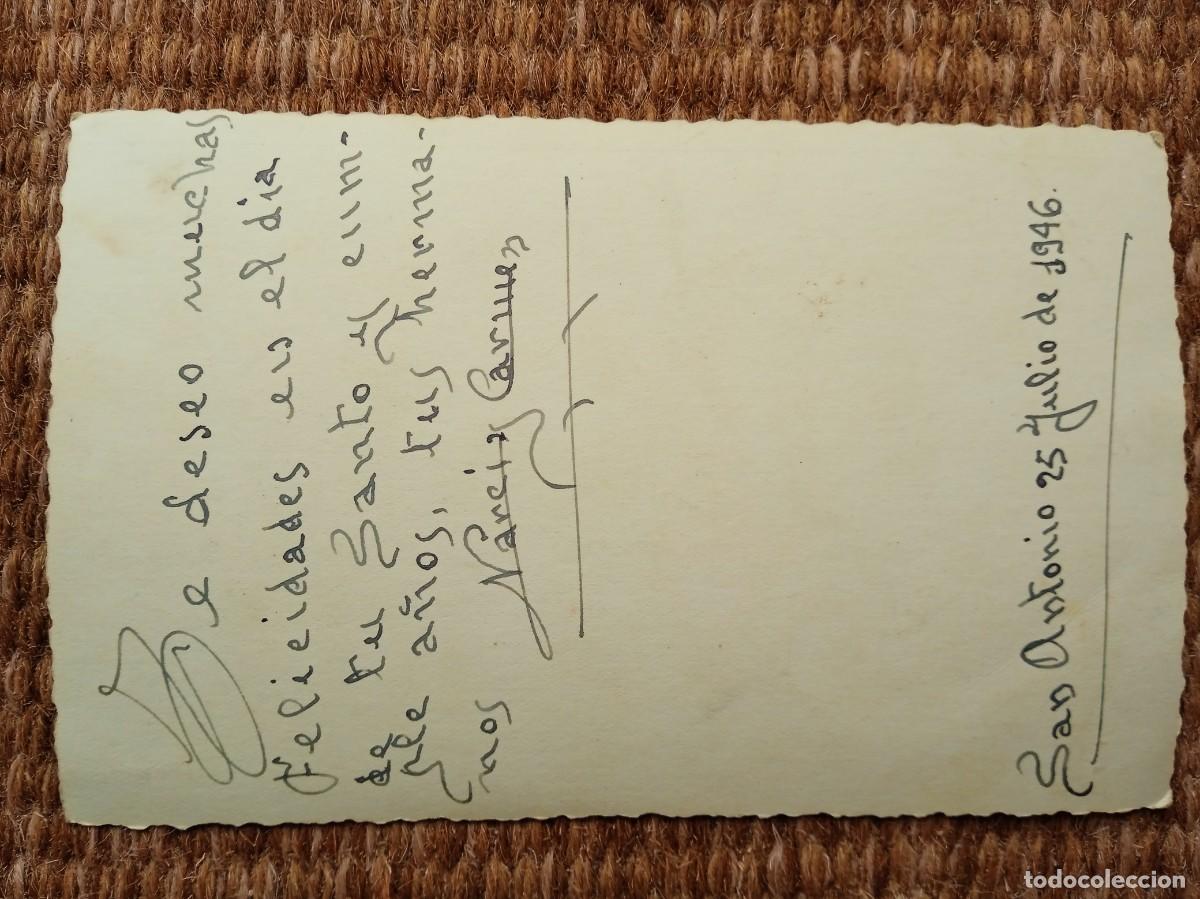 Te deseo muchas
Felicidades en el dia
de tu Santo y cum-
ple años, tus herma-
nos
Narci y Carmen
San Antonio 25 Julio de 1946.
todocoleccion